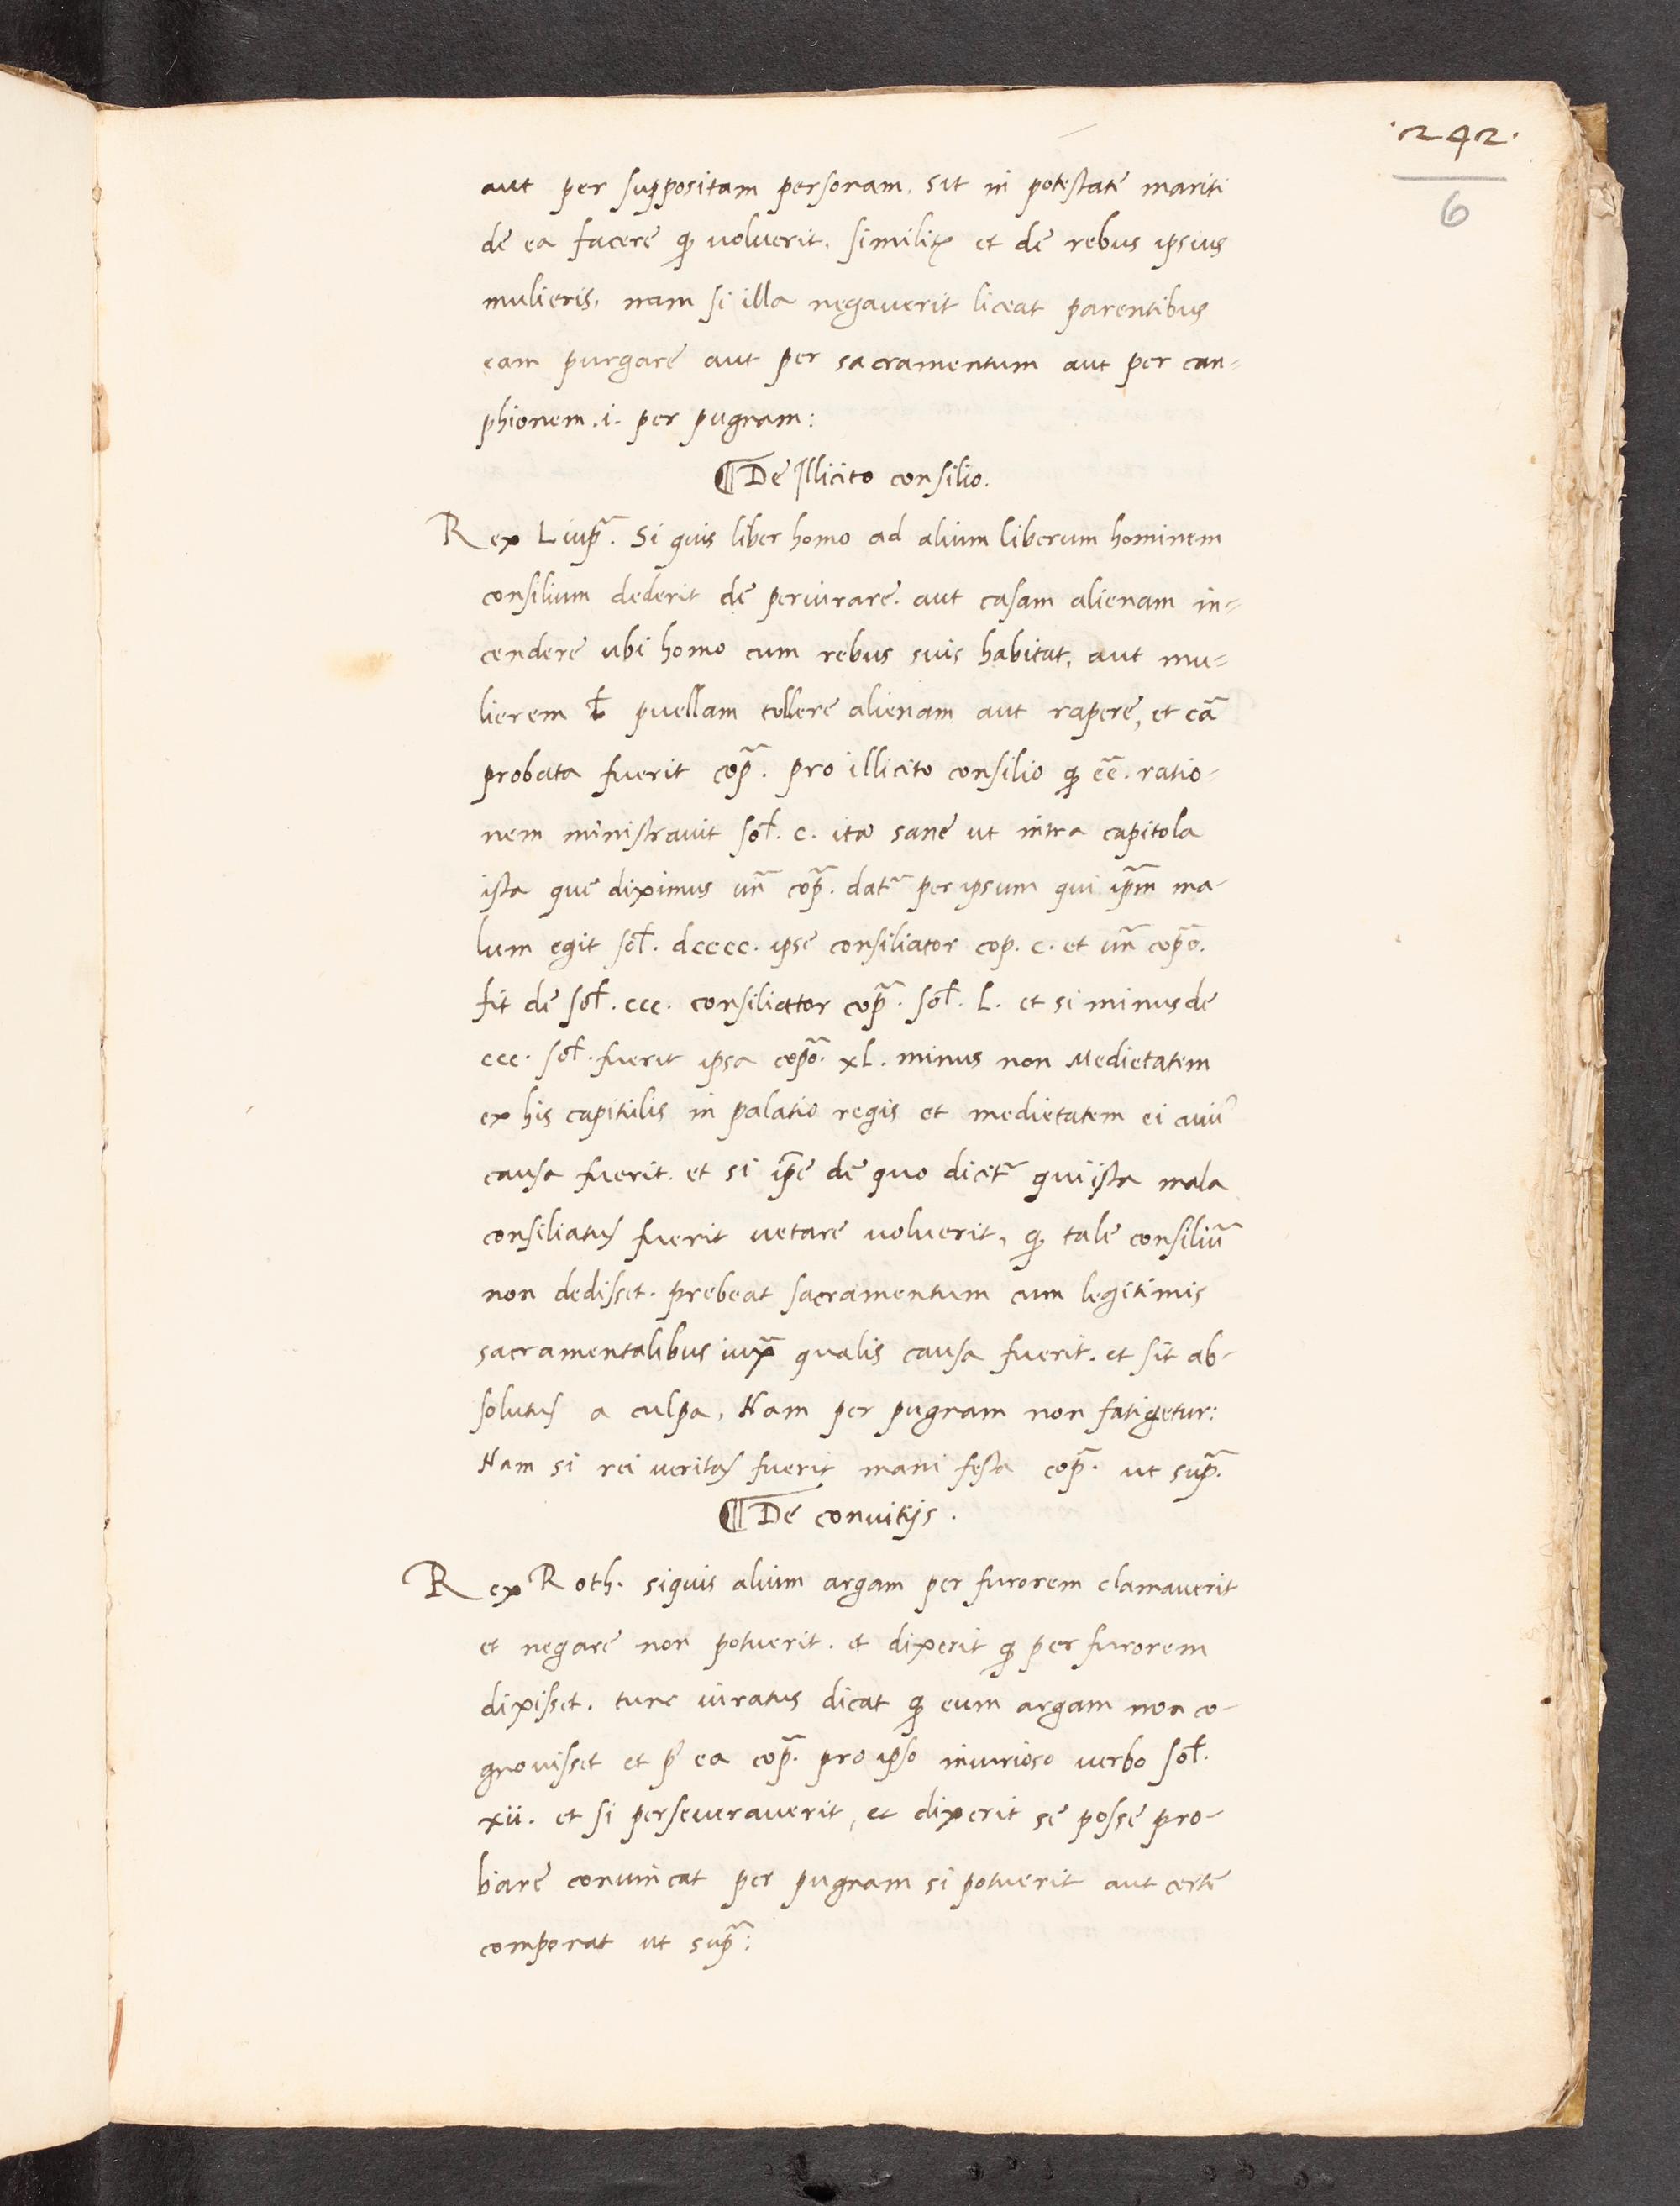 .242.
6
aut per suppositam personam. sit in potestate mariti
de ea facere ꝙ voluerit. similitꝛ et de rebus ipsius
mulieris. nam si illa negaverit liceat parentibus
eam purgare aut per sacramentum aut per can-
phionem .i. per pugnam:
¶ De Illicito consilio.
Rex Liup̃. Si quis liber homo ad alium liberum hominem
consilium dederit de periurare. aut casam alienam in-
cendere ubi homo cum rebus suis habitat. aut mu-
lierem ł puellam tollere alienam aut rapere, et cã
probata fuerit cop̃. pro illicito consilio ꝙ eẽ. ratio-
nem ministravit soł. c. ita sane ut intra capitola
ista que diximus uñ cop̃. datr̃ per ipsum qui ip̃m ma-
lum egit soł. dcccc. ipse consiliator cop. c. et uñ cop̃o.
fit de soł. ccc. consiliator cop̃. soł. L. et si minus de
ccc. soł. fuerit ipsa cop̃o. xL. minus non Medietatem
ex his capitulis in palatio regis et medietatem ei cuiu᾿
causa fuerit. et si ip̃e de quo dicit̃ qui ista mala
consiliatus fuerit vetare voluerit, ꝙ tale consiliũ
non dedisset. prebeat sacramentum cum legitimis
sacramentalibus iux̃ qualis causa fuerit. et sit ab-
solutus a culpa. Nam per pugnam non fatigetur:
Nam si rei veritas fuerit manifesta cop̃. ut sup̃.
¶ De convitijs.
Rex Roth. siquis alium argam per furorem clamaverit
et negare non potuerit. et dixerit ꝙ per furorem
dixisset. tunc iuratus dicat ꝙ eum argam non co-
gnovisset et p᾿ ea cop̃. pro ipso iniurioso verbo soł.
xii. et si perseveraverit, et dixerit se posse pro-
bare convincat per pugnam si potuerit aut certe
componat ut sup̃: